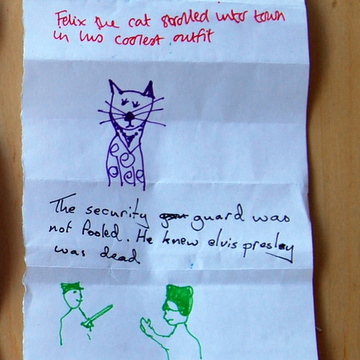 Felix the cat strolled into town
in his coolest outfit
The security guard was
not fooled. He knew elvis presley
was dead